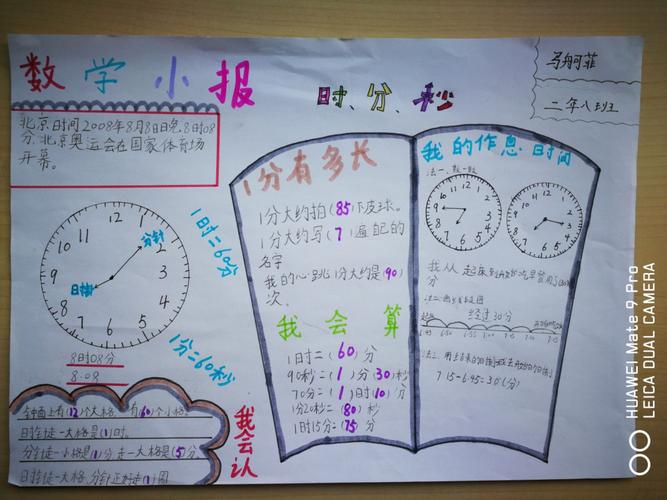 数学小报
时、分、秒
二年八班
北京时间2008年8月8日晚,8时08
分,北京奥运会在国家体育场
开幕。
12
1
2
3
4
5
6
7
8
9
10
11
分针
时针
8时08分
8:08
1时=60分
1分=60秒
钟面上有(12)个大格,有(60)个小格。
时针走一大格是(1)时。
分针走一小格是(1)分,走一大格是(5)分。
时针走一大格,分针正好走(1)圈
我会认
1分有多长
1分大约拍(85)下皮球。
1分大约写(7)遍自己的
名字
我的心跳1分大约是(90)
次。
我会算
1时=(60)分
90秒=(1)分(30)秒
70分=(1)时(10)分
1分20秒=(80)秒
1时15分=(75)分
我的作息时间
法一、数一数
12
1
2
3
4
5
6
7
8
9
10
11
12
1
2
3
4
5
6
7
8
9
10
11
我从起床到
分
经过30分
7:15-6:45=30(分)
HUAWEI Mate 9 Pro
LEICA DUAL CAMERA